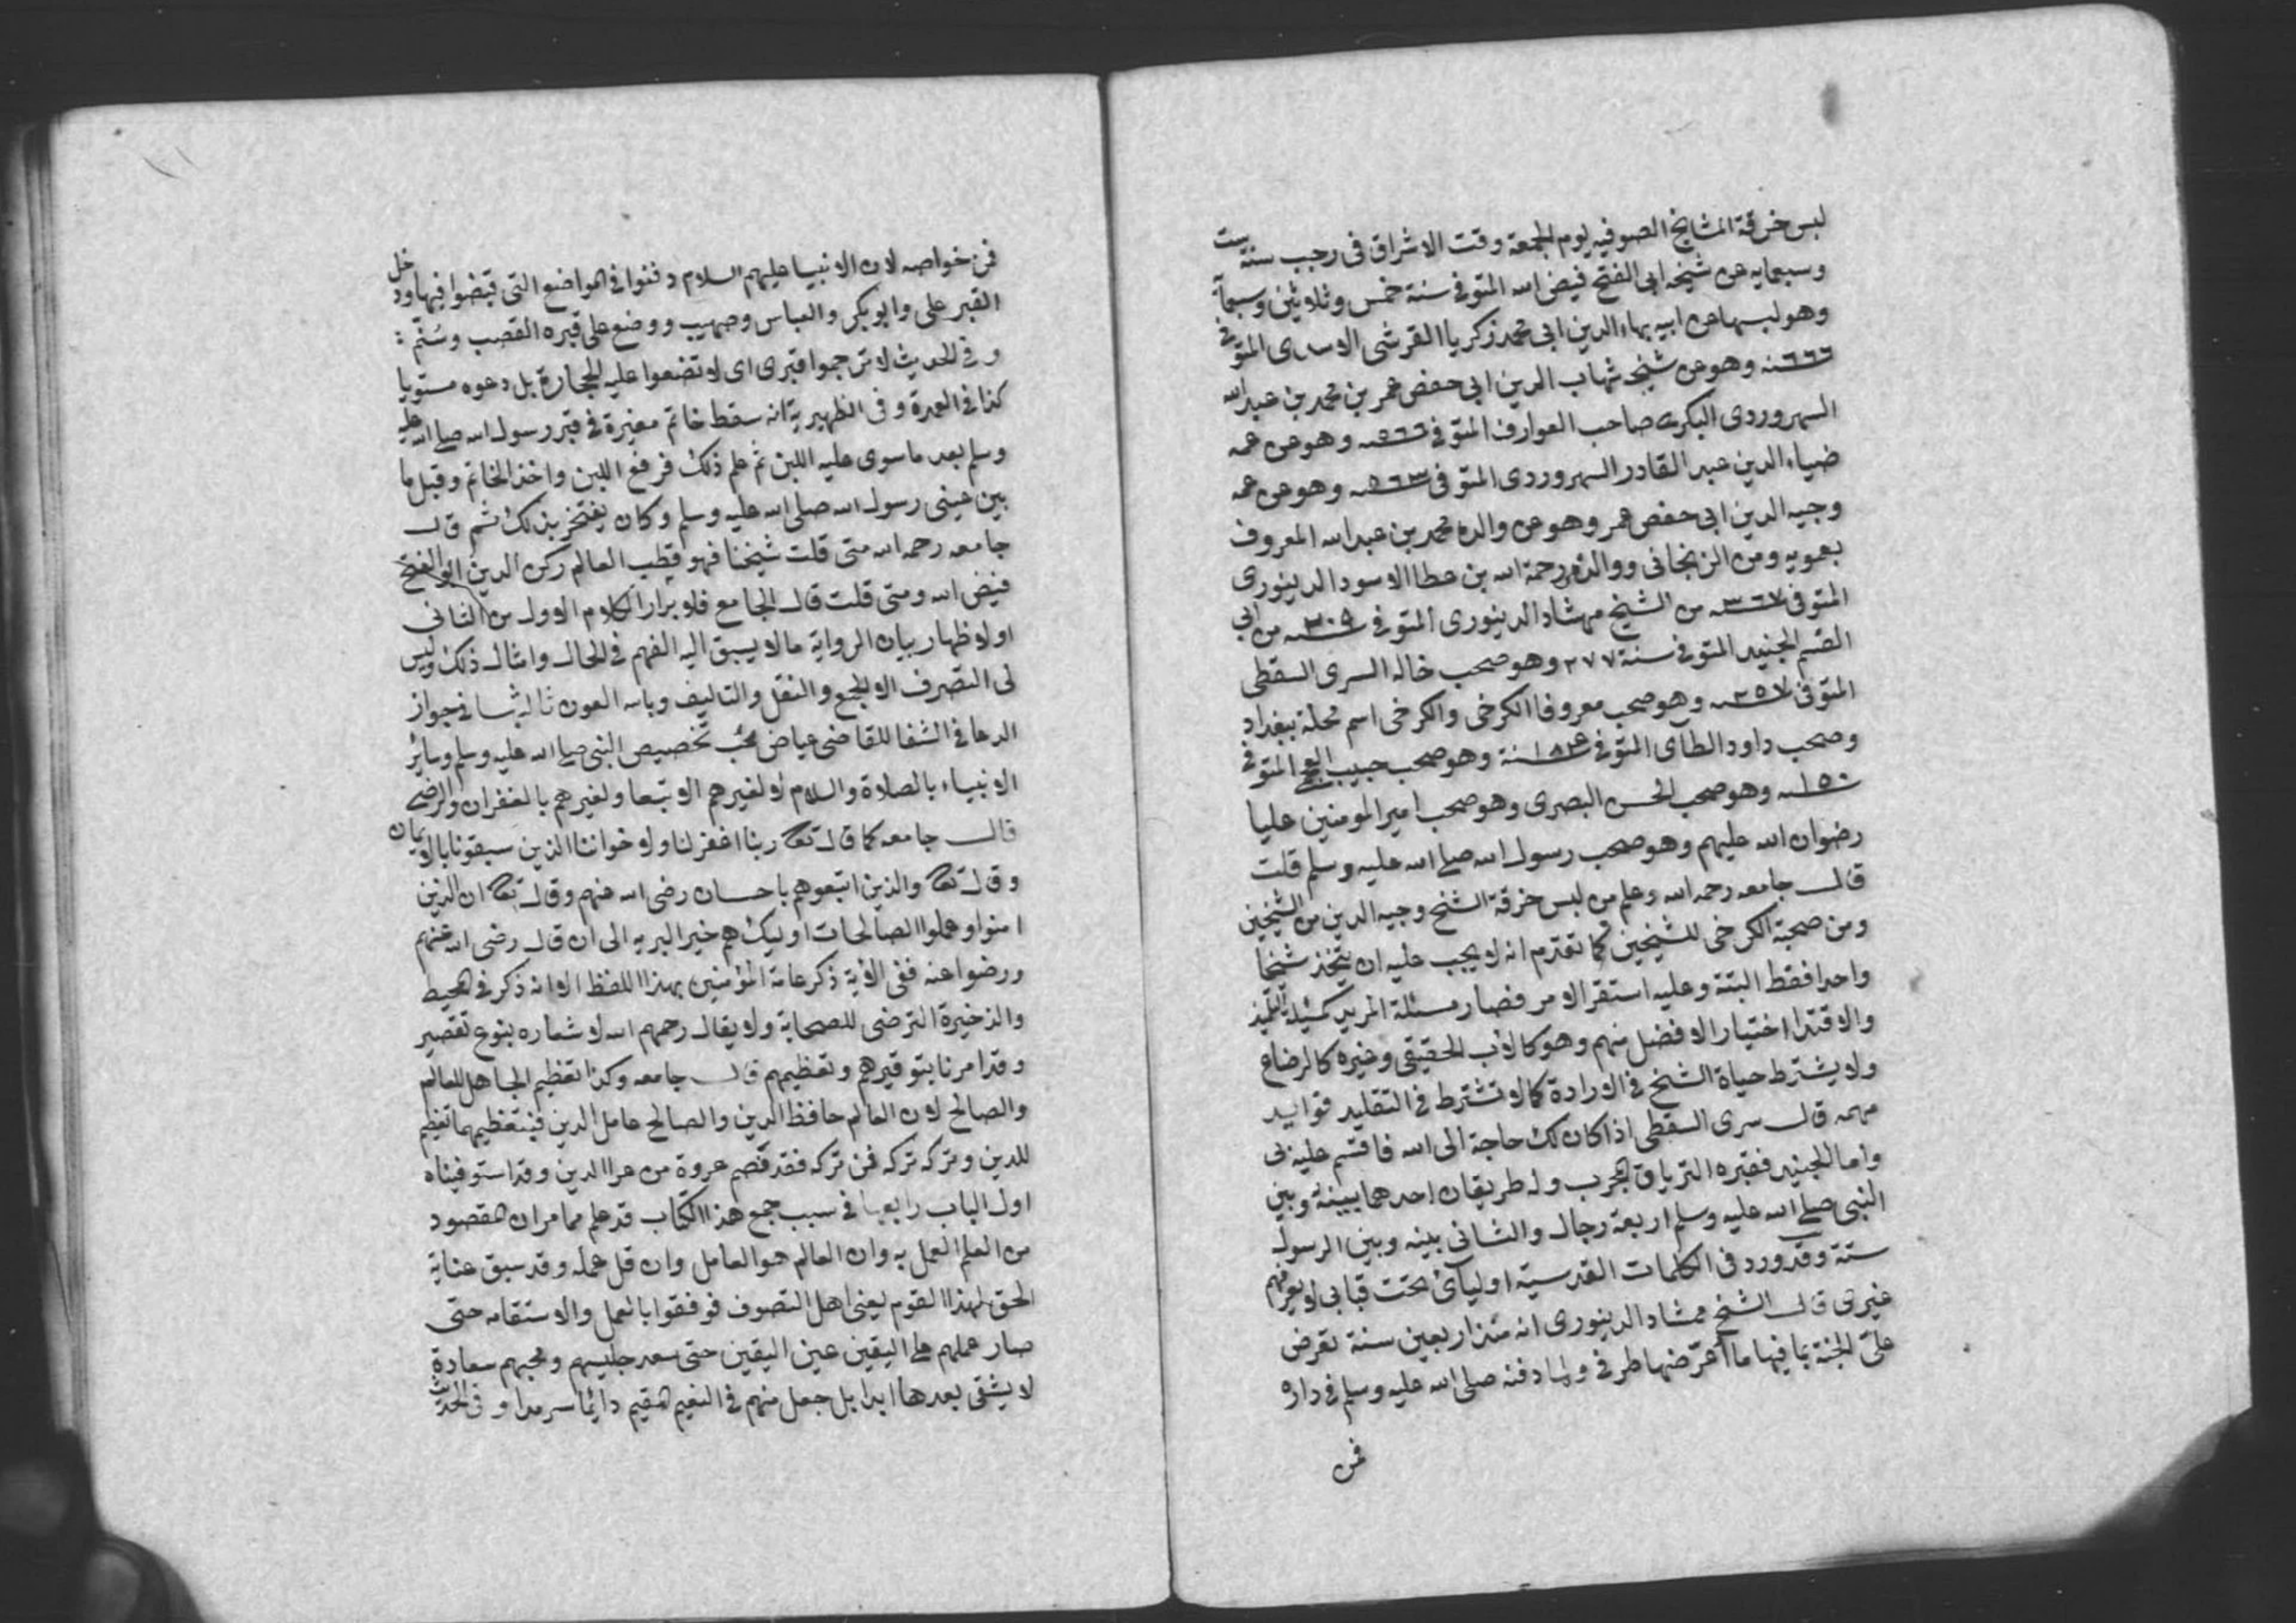 لبس خرقة المشايخ الصوفيه يوم الجمعة وقت الاشراق فى رجب سنة ست
وسبعمايه عن شيخه ابى الفتح فيض الله المتوفى سنة خمس وثلاثين وسبعمآة
وهو لبسها عن ابيه بهاء الدين ابى محمد زكريا القرشى الاسدى المتوفى
٦٦٦ـنه وهو عن شيخه شهاب الدين ابى حفص عمر بن محمد بن عبد الله
السهروردى البكرى صاحب العوارف المتوفى وهو عن عمه
ضياء الدين عبد القادر السهروردى المتوفى ٥٦٣ـنه وهو عن عمه
وجيه الدين ابى حفص عمر وهو عن والده محمد بن عبد الله المعروف
بعمويه ومن الزنجانى ووالده رحمة الله بن عطا الاسود الدينورى
المتوفى ٣٦٧ـنه من الشيخ ممشاد الدينورى المتوفى من ابى
القسم الجنيد المتوفى سنة ٢٧٧ وهو صحب خاله السرى السقطى
المتوفى ٢٥٧ـنه وهو صحب معروفا الكرخى والكرخى اسم محلة ببغداد
وصحب داود الطآى المتوفى سنة وهو صحب حبيب العجمى المتوفى
١٥٠ـنه وهو صحب الحسن البصرى وهو صحب امير المومنين عليا
رضوان الله عليهم وهو صحب رسول الله صلى الله عليه وسلم قلت
قال جامعه رحمه الله وعلم من لبس خرقة الشخ وجيه الدين من الشيخين
ومن صحبة الكرخى للشيخين كما تقدم انه لا يجب عليه ان يتخذ شيخا
واحدا فقط البتة وعليه استقر الامر فصار مسئلة المريد كمسئلة التلميذ
والاقتدا اختيار الافضل منهم وهو كالاب الحقيقى وغيره كالرضاع
ولا يشترط حياة الشخ فى الارادة كما لا تشترط فى التقليد فوايد
مهمه قال سرى السقطى اذا كان لك حاجة الى الله فاقسم عليه بى
واما الجنيد فقبره الترياق المجرب وله طريقان احدهما بينه وبين
النبى صلى الله عليه وسلم اربعة رجال والثانى بينه وبين الرسول
ستة وقد ورد فى الكلمات القدسية اوليآئ تحت قبابى لا يعرفهم
غيرى قال الشيخ ممشاد الدينورى انه منذ اربعين سنة تعرض
علىّ الجنة بما فيها ما أعرضها طرفى ولما دفنه صلى الله عليه وسلم فى داره
فمن
فمن خواصه لان الانبيا عليهم السلام دفنوا فى المواضع التى قبضوا فيها ودخل
القبر على وابو بكر والعباس وصهيب ووضع على قبره القصب وسُنّم
وفى الحديث لا ترجموا قبرى اى لا تضعوا عليه الحجارة بل دعوه مستويا
كذا فى العدة وفى الظهيرية انه سقط خاتم مغيرة فى قبر رسول الله صلى الله عليه
وسلم بعد ما سوى عليه اللبن ثم علم ذلك فرفع اللبن واخذ الخاتم وقبل ما
بين عينى رسول الله صلى الله عليه وسلم وكان يفتخر بذلك ثم قال
جامعه رحمه الله متى قلت شيخنا فهو قطب العالم ركن الدين ابو الفتح
فيض الله ومتى قلت قال الجامع فلابراز الكلام الاول من الثانى
او لاظهار بيان الرواية ما لا يسبق اليه الفهم فى الحال وامثال ذلك وليس
لى التصرف الا الجمع والنقل والتاليف وبالله العون ثالثها فى جواز
الدعا فى الشفا للقاضى عياض يجب تخصيص النبى صلى الله عليه وسلم وساير
الانبياء بالصلاة والسلام لا لغيرهم الا تبعا ولغيرهم بالغفران والرضى
قال جامعه كما قال تعالى ربنا اغفر لنا ولاخواننا الذين سبقونا بالايمان
وقال تعالى والذين اتبعوهم باحسان رضى الله عنهم وقال تعالى ان الذين
امنوا وعملوا الصالحات اوليك هم خير البريه الى ان قال رضى الله عنهم
ورضوا عنه ففى الاية ذكر عامة المؤمنين بهذا اللفظ الا انه ذكر فى المحيط
والذخيرة الترضى للصحابة ولا يقال رحمهم الله لاشعاره بنوع تقصير
وقد امرنا بتوقيرهم وتعظيمهم قال جامعه وكذا تعظيم الجاهل للعالم
والصالح لان العالم حافظ الدين والصالح عامل الدين فبتعظيمهما تعظيم
للدين وتركه تركه فمن تركه فقد فصم عروة من عرا الدين وقد استوفيناه
اول الباب رابعها فى سبب جمع هذا الكتاب قد علم مما مر ان المقصود
من العلم العمل به وان العالم هو العامل وان قل عمله وقد سبق عناية
الحق لهذا القوم يعنى اهل التصوف فوفقوا بالعمل والاستقامه حتى
صار عملهم على اليقين عين اليقين حتى سعد جليسهم ومحبهم سعادة
لا يشقى بعدها ابدا بل جعل منهم فى النعيم المقيم دائما سرمدا وفى الحديث